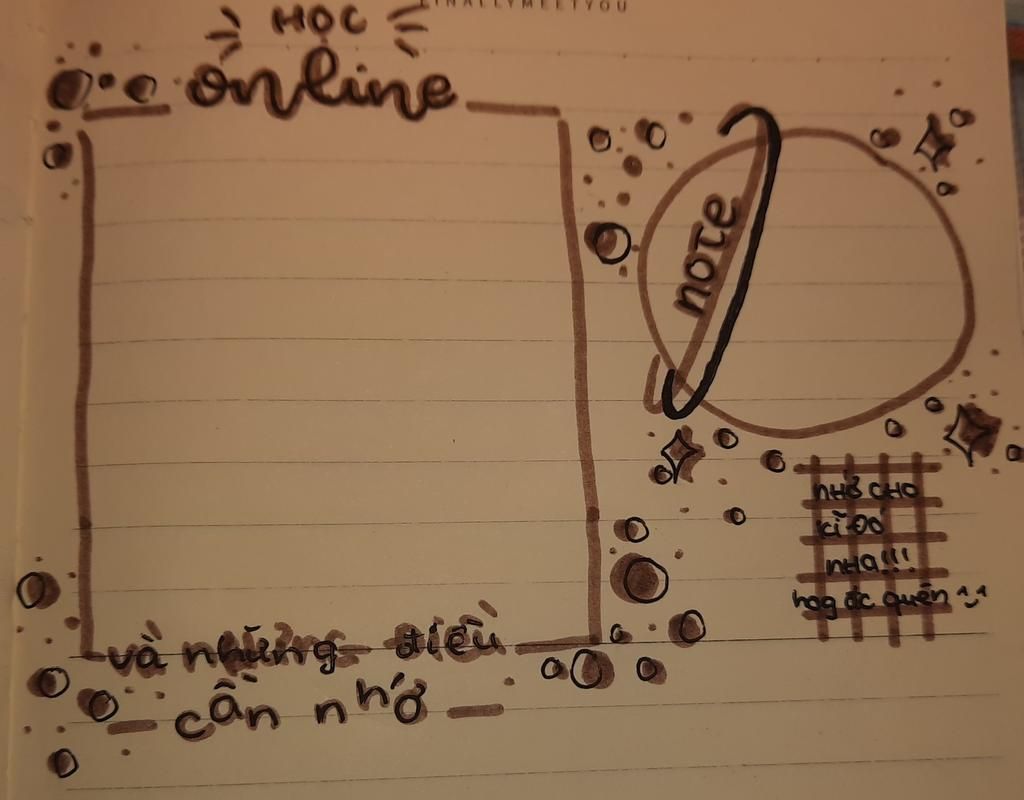 FINALLYMEETYOU
HỌC
online
note
và những điều
cần nhớ
nhớ cho
kĩ đó
nha!!!
hog đc quên ^^